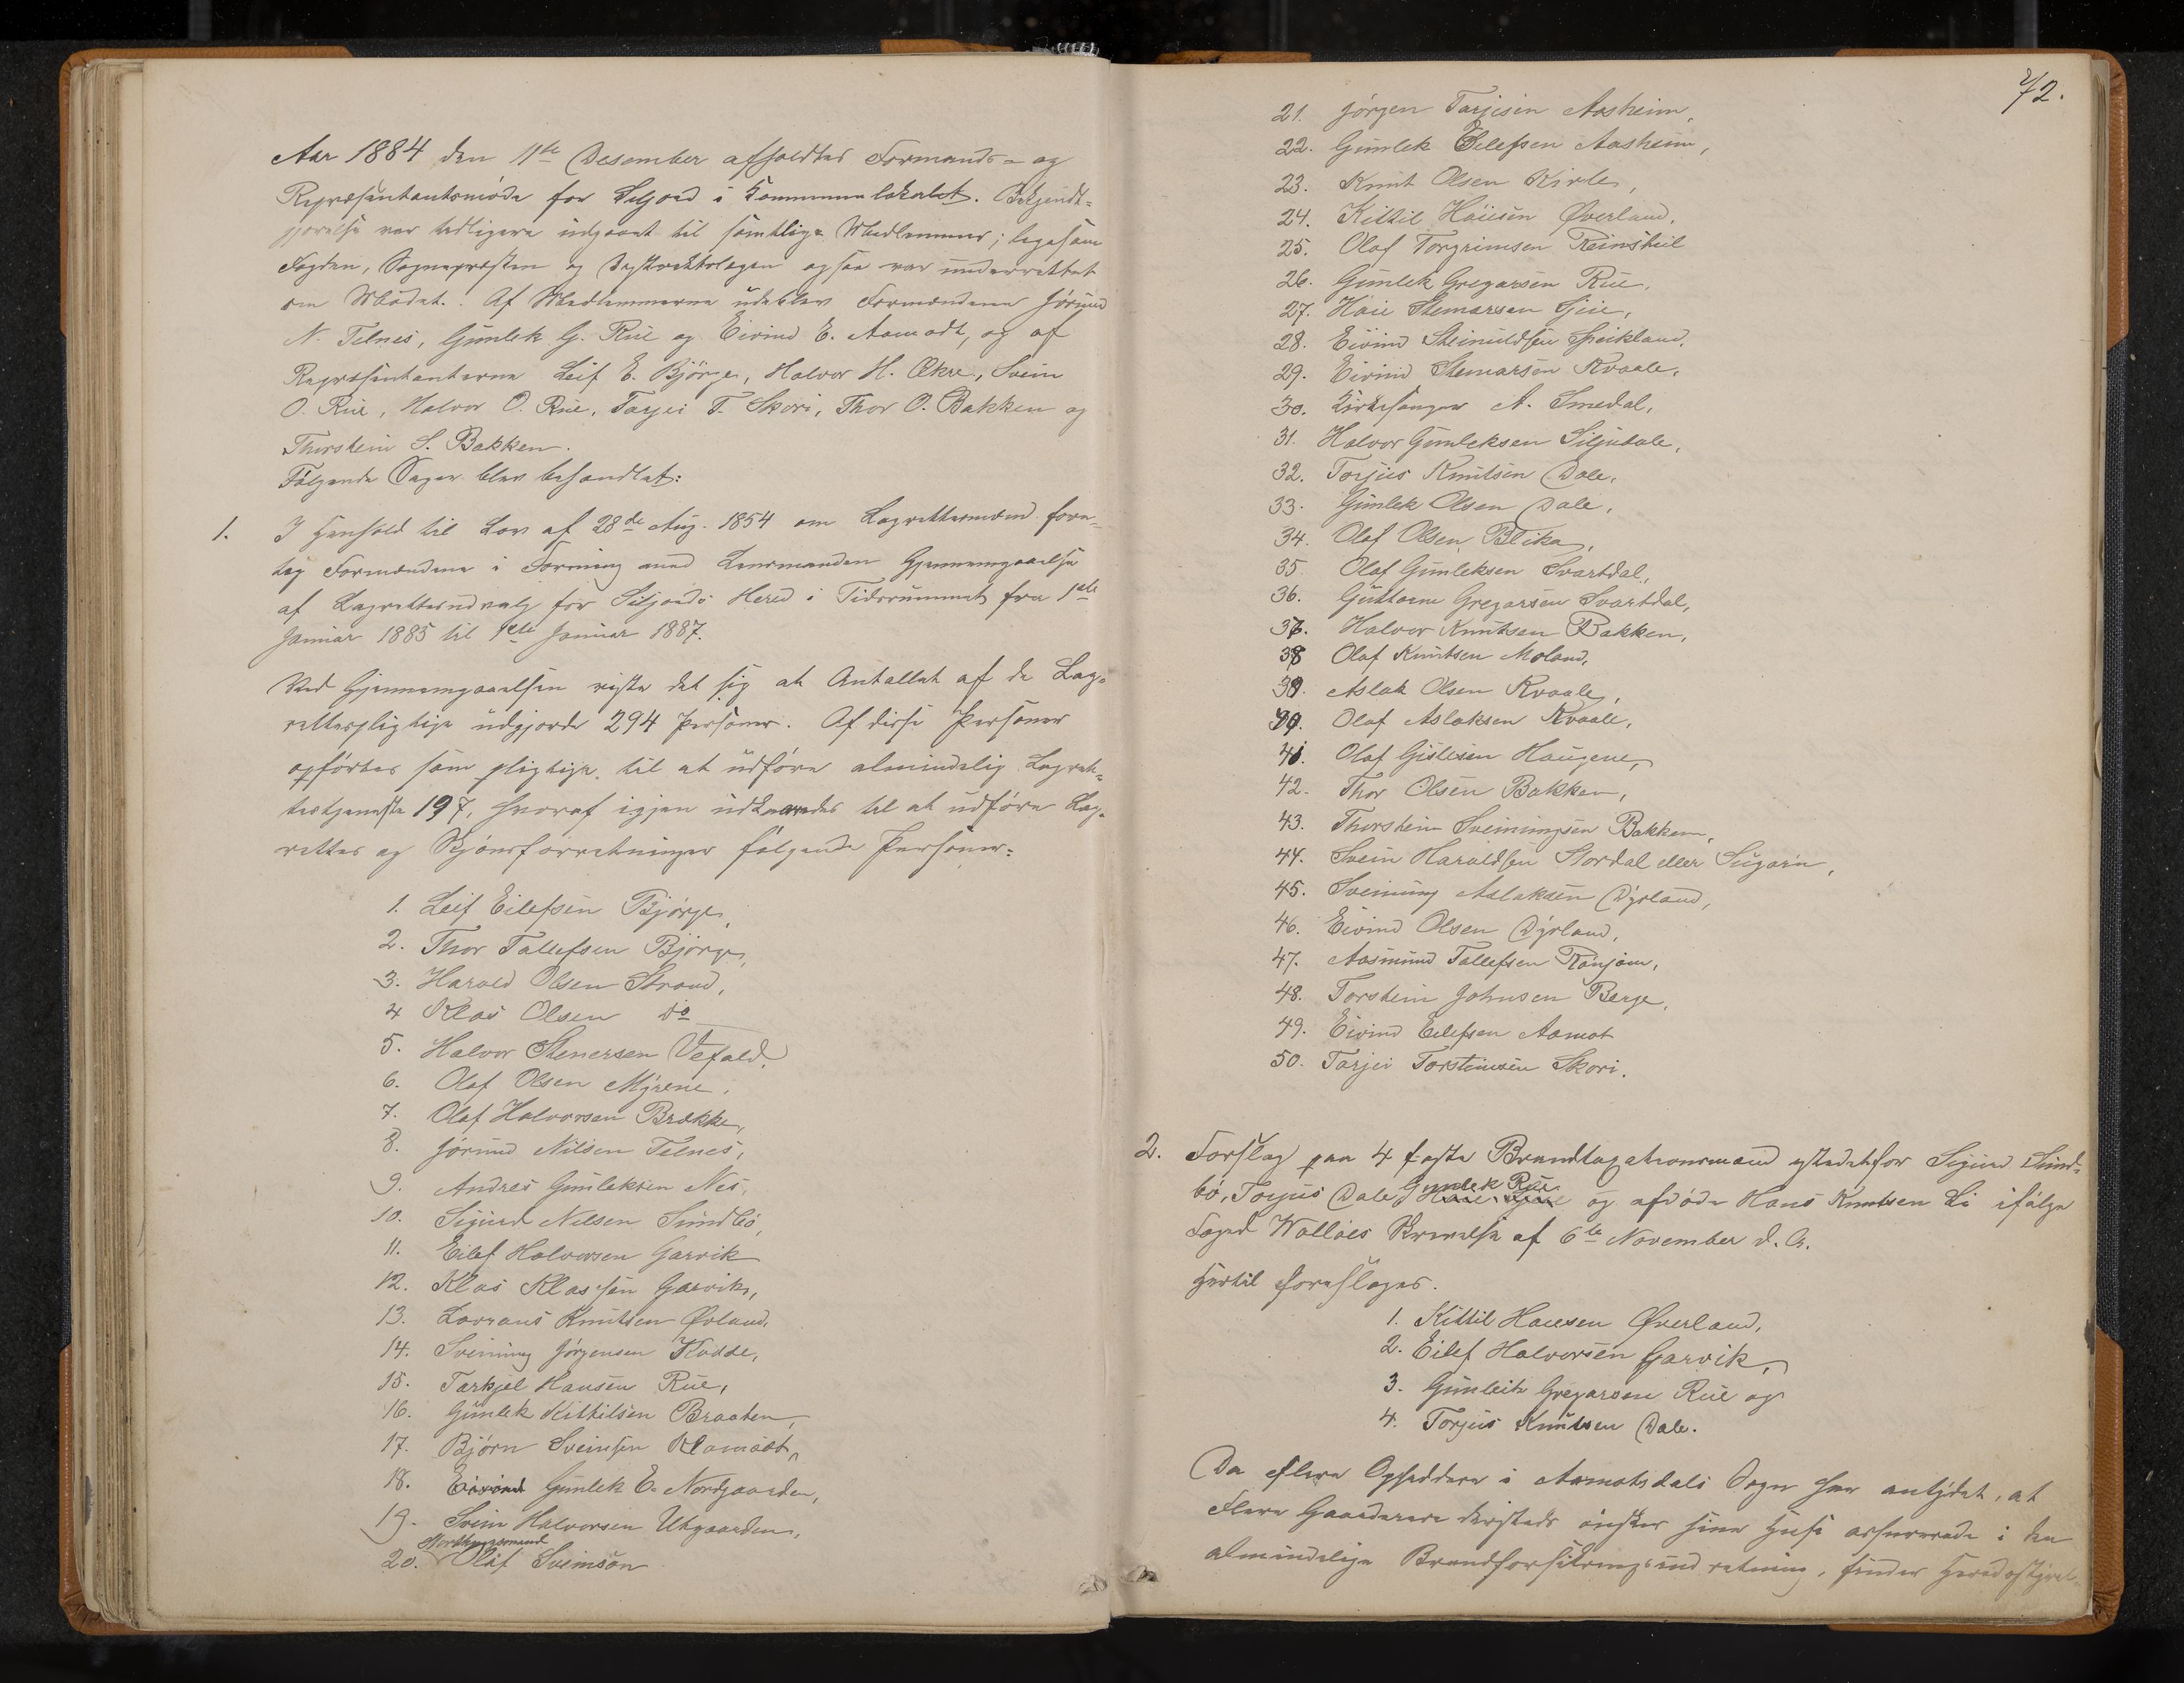 Aar 1884 den 11te Desember afholdtes Formands- og
Repræsentantsmöde for Seljord i Kommunelokalet. Bekjendt-
gjörelse var tidligere udgaaet til samtlige Medlemmer; ligesom
Fogden, Sognepræsten og Distriktslægen ogsaa var underrettet
om Mödet. Af Medlemmerne udeblev Formændene Jörund
N. Telnes, Gunlek G. Rue og Eivind E. Aamodt, og af
Repræsentanterne Leif E. Björge, Halvor H. Ækre, Svein
O. Rue, Halvor O. Rue, Tarjei T. Skori, Thor O. Bakken og
Thorstein S. Bakken.
Fölgende Sager blev behandlet:
1. I Henhold til Lov af 28de Aug. 1854 om Lagrettesmænd fore-
tog Formændene i Forening med Lensmanden Gjennemgaaelse
af Lagrettesudvalg for Seljords Hered i Tidsrummet fra 1ste
Januar 1885 til 1ste Januar 1887.
Ved Gjennemgaaelsen viste det sig at Antallet af de Lag-
rettespligtige udgjorde 294 Personer. Af disse Personer
opförtes som pligtige til at udföre almindelig Lagret-
testjeneste 197, hvoraf igjen udkaaredes til at udföre Lag-
rettes og Skjönsforretninger fölgende Personer:
1. Leif Eilefsen Björge,
2. Thor Tallefsen Björge,
3. Harald Olsen Strand,
4 Klas Olsen do
5. Halvor Stenersen Vefald,
6. Olaf Olsen Myrene,
7. Olaf Halvorsen Brække,
8. Jörund Nilsen Telnes,
9. Andres Gunleksen Nes,
10. Sigurd Nilsen Sundbö,
11. Eilef Halvorsen Garvik
12. Klas Klassen Garvik,
13. Lavrans Knutsen Øvland,
14. Sveinung Jörgensen Kodde,
15. Tarkjel Hansen Rue,
16. Gunlek Kittilsen Braaten,
17. Björn Sveinsen Aamodt,
18. Eivind Gunlek E. Nordgaarden,
19. Svein Halvorsen Utgaarden,
Storthingsmand
20. Olaf Sveinsön
72.
21. Jörgen Tarjeisen Aasheim,
22. Gunlek Eilefsen Aasheim,
23. Knut Olsen Kirle,
24. Kittil Hansen Øverland,
25. Olaf Torgrimsen Reinskeil
26. Gunlek Gregarsen Rue,
27. Haie Stemarsen Gjeie,
28. Eivind Steinuldsen Speikland,
29. Eivind Stemarsen Kvaale,
30. Kirkesanger A. Smedal,
31. Halvor Gunleksen Siljudale,
32. Torjus Knutsen Dale,
33. Gunlek Olsen Dale,
34. Olaf Olsen Blika,
35. Olaf Gunleksen Svartdal,
36. Guttorm Gregarsen Svartdal,
37. Halvor Knutsen Bakken,
38 Olaf Knutsen Moland,
39. Aslak Olsen Kvaale,
40. Olaf Aslaksen Kvaale,
41. Olaf Gislesen Haugene,
42. Thor Olsen Bakken,
43. Thorstein Sveinungsen Bakken,
44. Svein Haraldsen Stordal eller Sugarn,
45. Sveinung Aslaksen Dyrland,
46. Eivind Olsen Dyrland,
47. Aasmund Tallefsen Rønjom,
48. Torstein Johnsen Berge,
49. Eivind Eilefsen Aamot
50. Tarjei Torsteinsen Skori.
2. Forslag paa 4 faste Brandtaxationsmænd istedetfor Sigurd Sund-
Gunlek Rue
bö, Torjus Dale, Haie Gjeie og afdöde Hans Knutsen Li ifölge
Foged Wolläes Skrivelse af 6te November d. A.
Hertil foreslages.
1. Kittil Hansen Øverland,
2. Eilef Halvorsen Garvik,
3. Gunleik Gregarsen Rue og
4. Torjus Knutsen Dale.
Da flere Opsiddere i Aamotsdals Sogn har antydet, at
Flere Gaardeiere dersteds önsker sine Huse assurerede i den
almindelige Brandforsikringsindretning, finder Heredsstyrel-